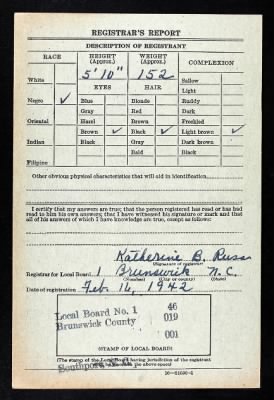 REGISTRAR'S REPORT
DESCRIPTION OF REGISTRANT
RACE HEIGHT (Approx.) WEIGHT (Approx.) COMPLEXION
5' 10" 152
White EYES HAIR Sallow
Light
Negro ✓ Blue Blonde Ruddy
Gray Red Dark
Oriental Hazel Brown Freckled
Brown ✓ Black ✓ Light brown ✓
Indian Black Gray Dark brown
Bald Black
Filipino
Other obvious physical characteristics that will aid in identification
I certify that my answers are true; that the person registered has read or has had
read to him his own answers; that I have witnessed his signature or mark and that
all of his answers of which I have knowledge are true, except as follows:
Katherine B. Russ
(Signature of registrar)
Registrar for Local Board 1 Brunswick N.C.
(Number) (City or county) (State)
Date of registration Feb. 16, 1942
Local Board No. 1 46
Brunswick County 019
001
Southport, N.C.
(STAMP OF LOCAL BOARD)
(The stamp of the Local Board having jurisdiction of the registrant
the above space)
16—21630-1